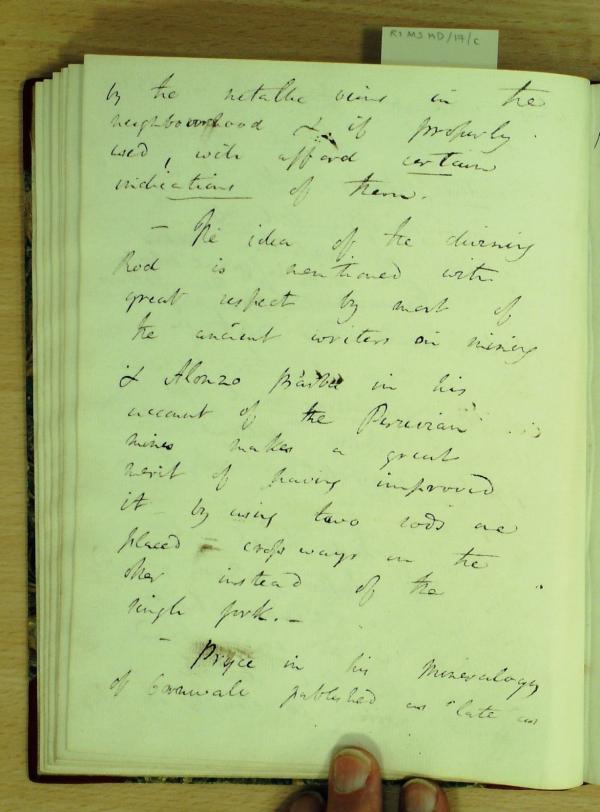 RI MS HD/17/C
by the metallic veins in the
neighbourhood & if properly
used, will afford certain
indications of them.
— The idea of the divining
Rod is mentioned with
great respect by most of
the ancient writers on mining
& Alonzo Barba in his
account of the Peruvian
mines makes a great
merit of having improved
it by using two rods one
placed – cross ways on the
other instead of the
single fork. –
– Pryce in his Mineralogy
of Cornwall published as late as